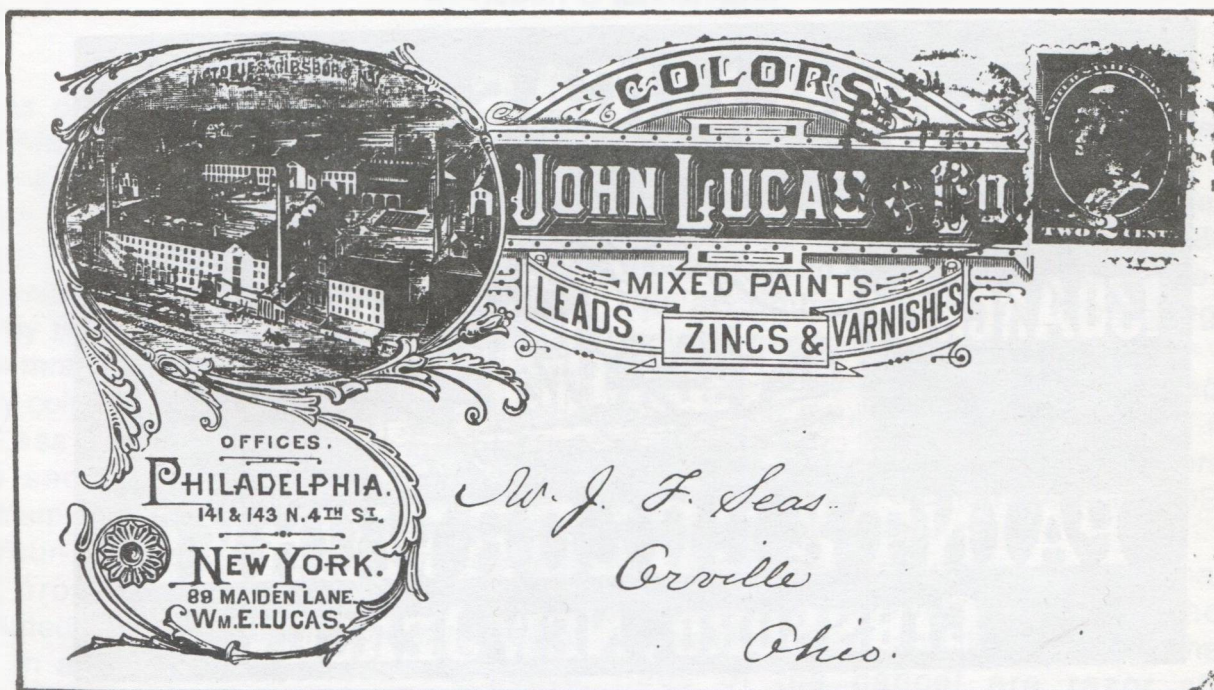 FACTORIES, GIBSBORO N.J.
COLORS
JOHN LUCAS & CO.
MIXED PAINTS
LEADS, ZINCS & VARNISHES
TWO 2 CENTS.
OFFICES.
PHILADELPHIA.
141 & 143 N. 4TH ST.
NEW YORK.
89 MAIDEN LANE.
WM. E. LUCAS.
W. J. F. Seas.
Orville
Ohio.